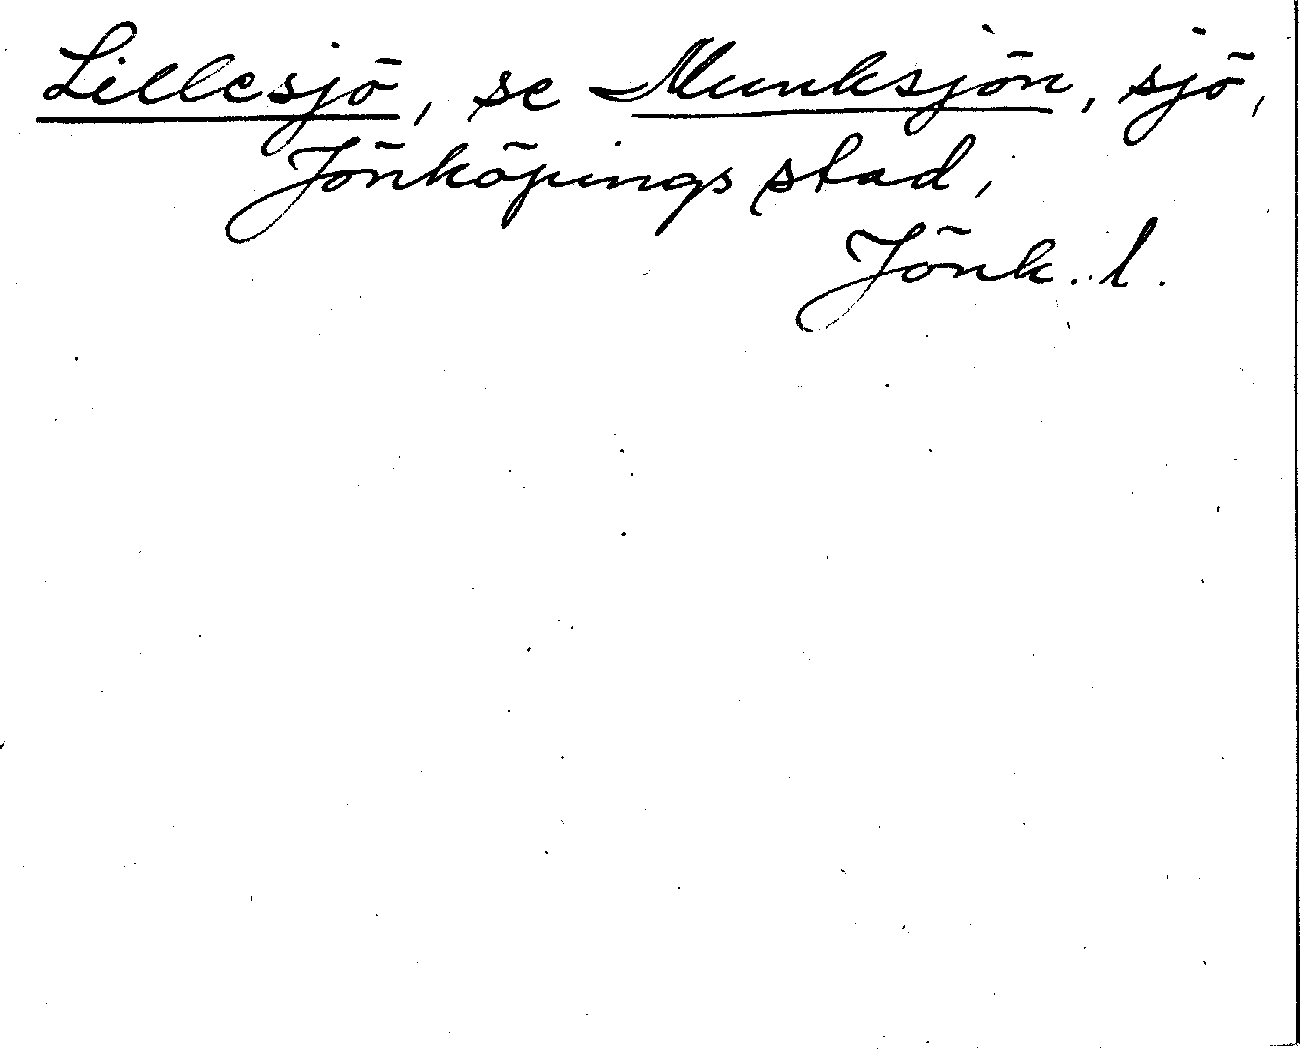 Lillesjö, se Munksjön, sjö,
Jönköpings stad,
Jönk. l.